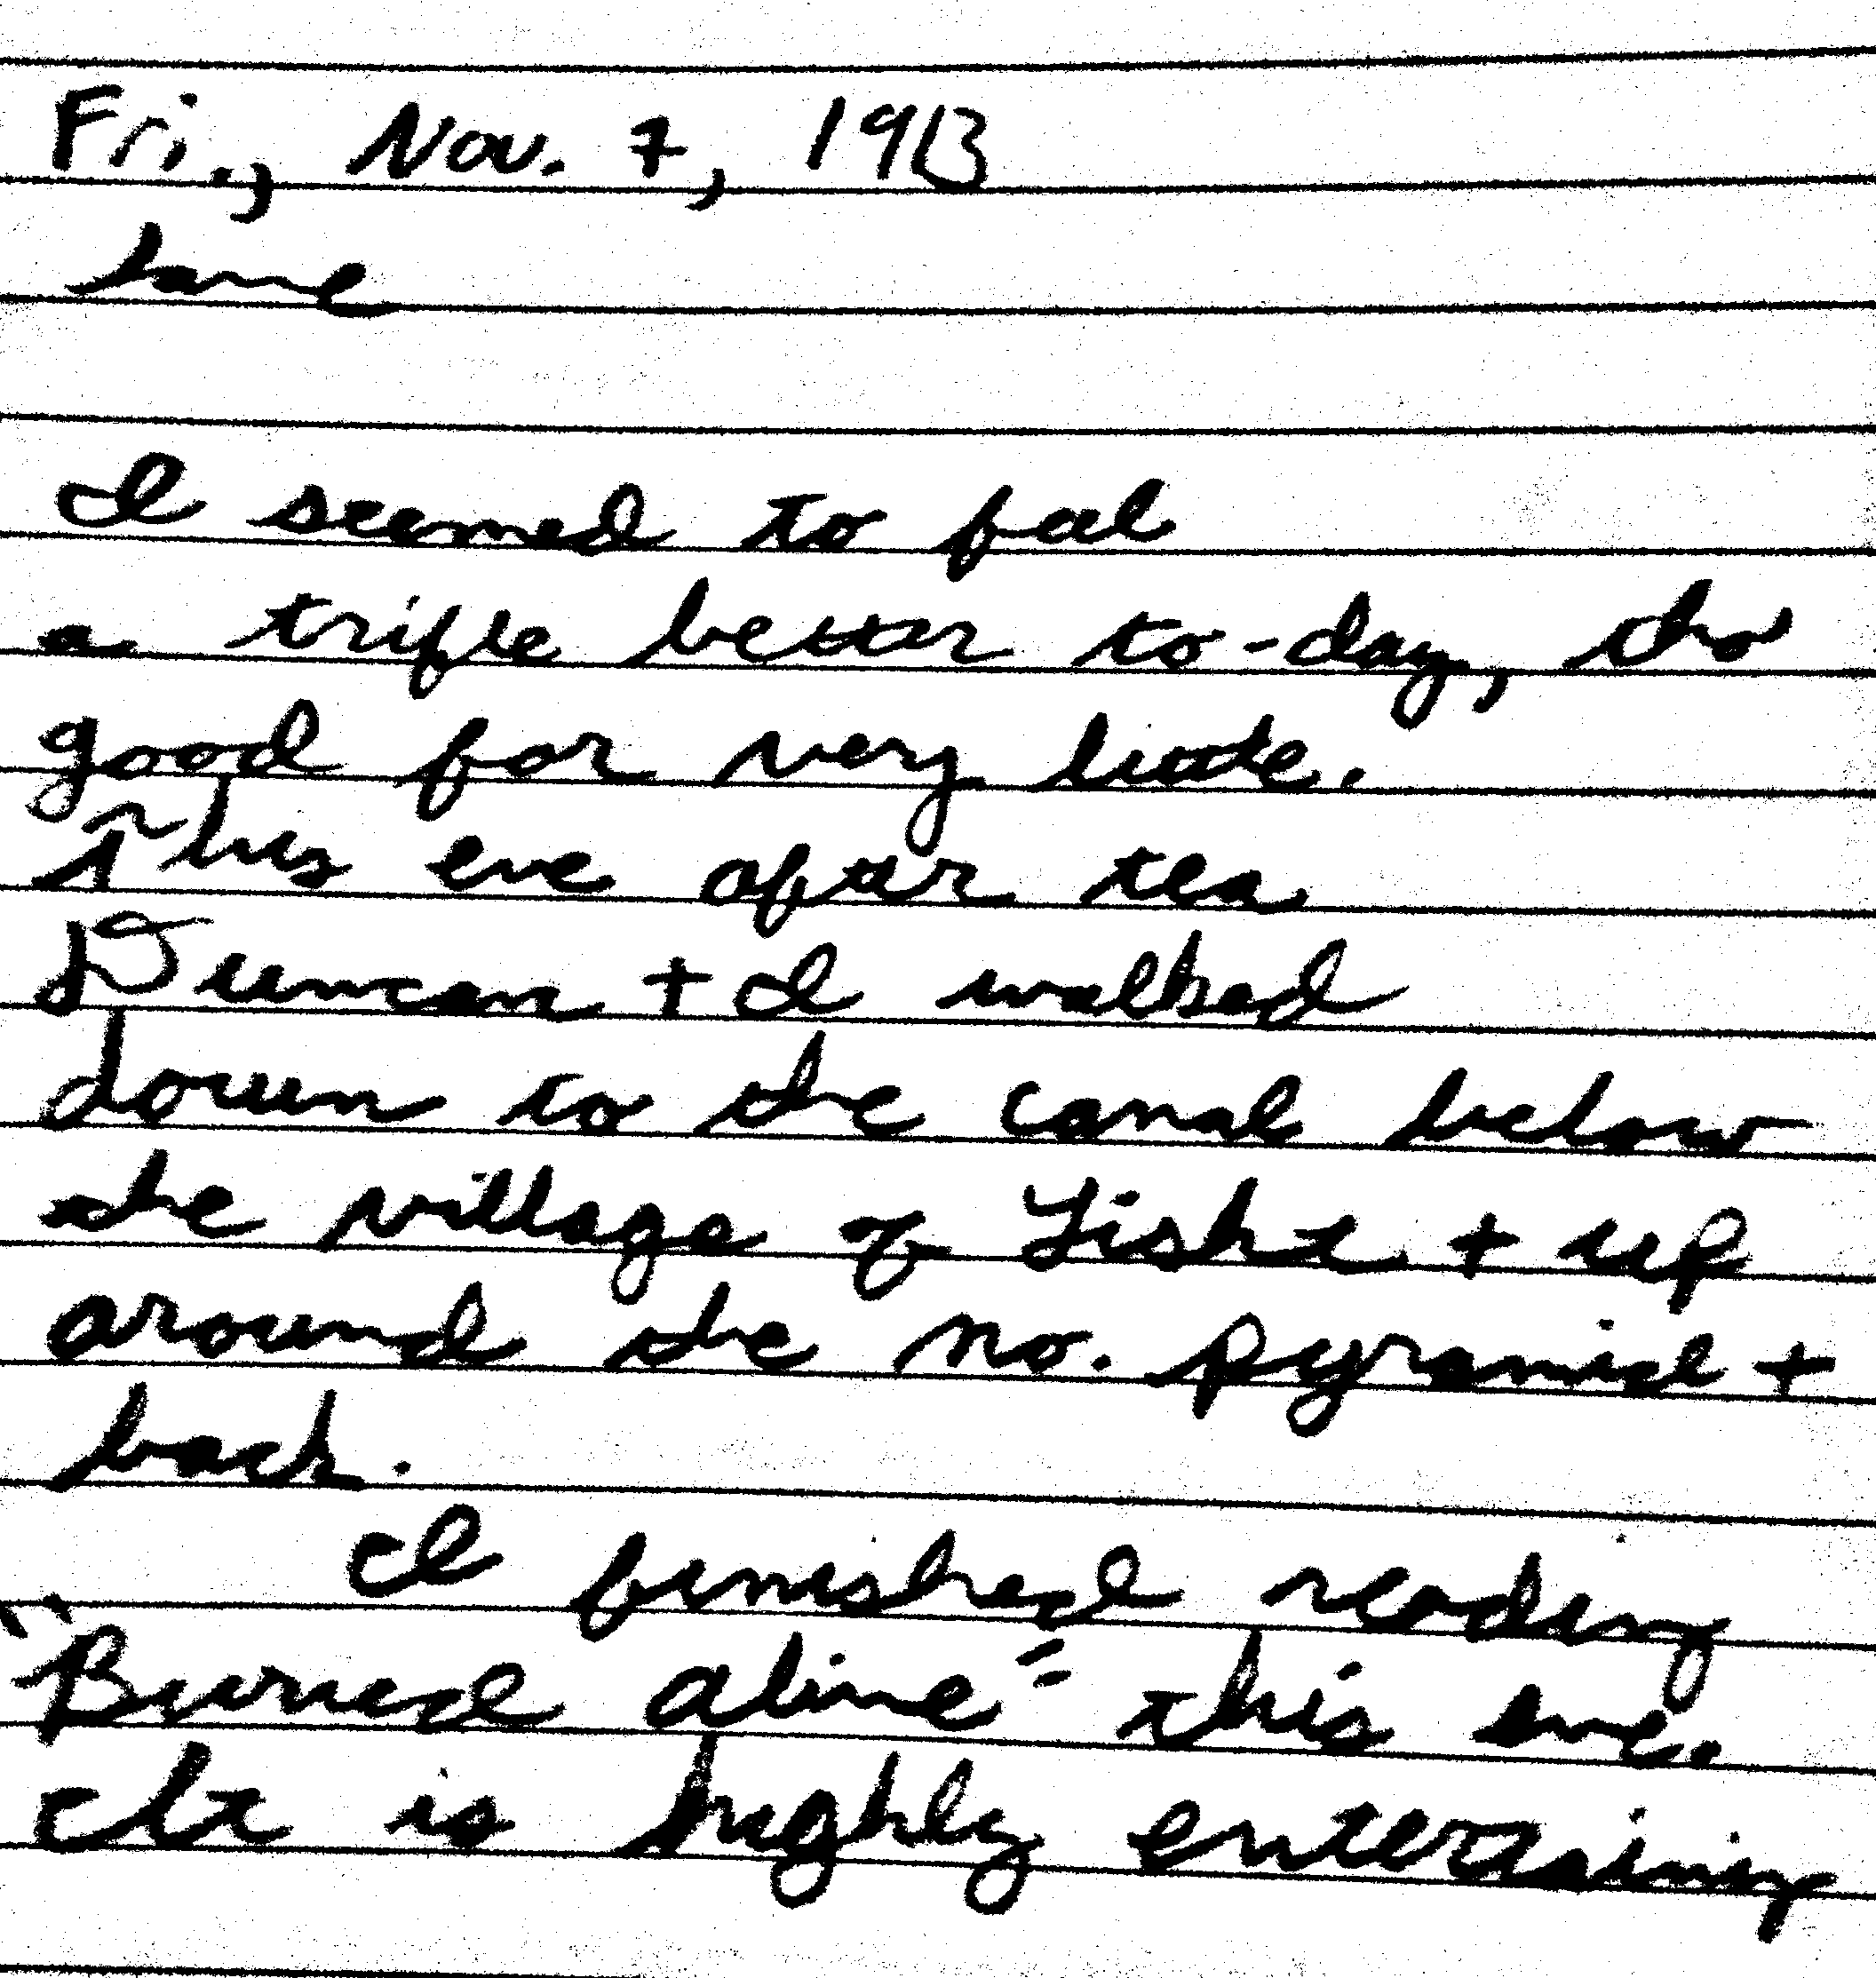 Fri., Nov. 7, 1913
Same
I seemed to feel
a trifle better to-day, tho
good for very little.
This eve after tea
Duncan + I walked
down to the canal below
the village of Lisht + up
around the no. pyramid +
back.
I finished reading
"Buried alive" this eve.
It is highly entertaining